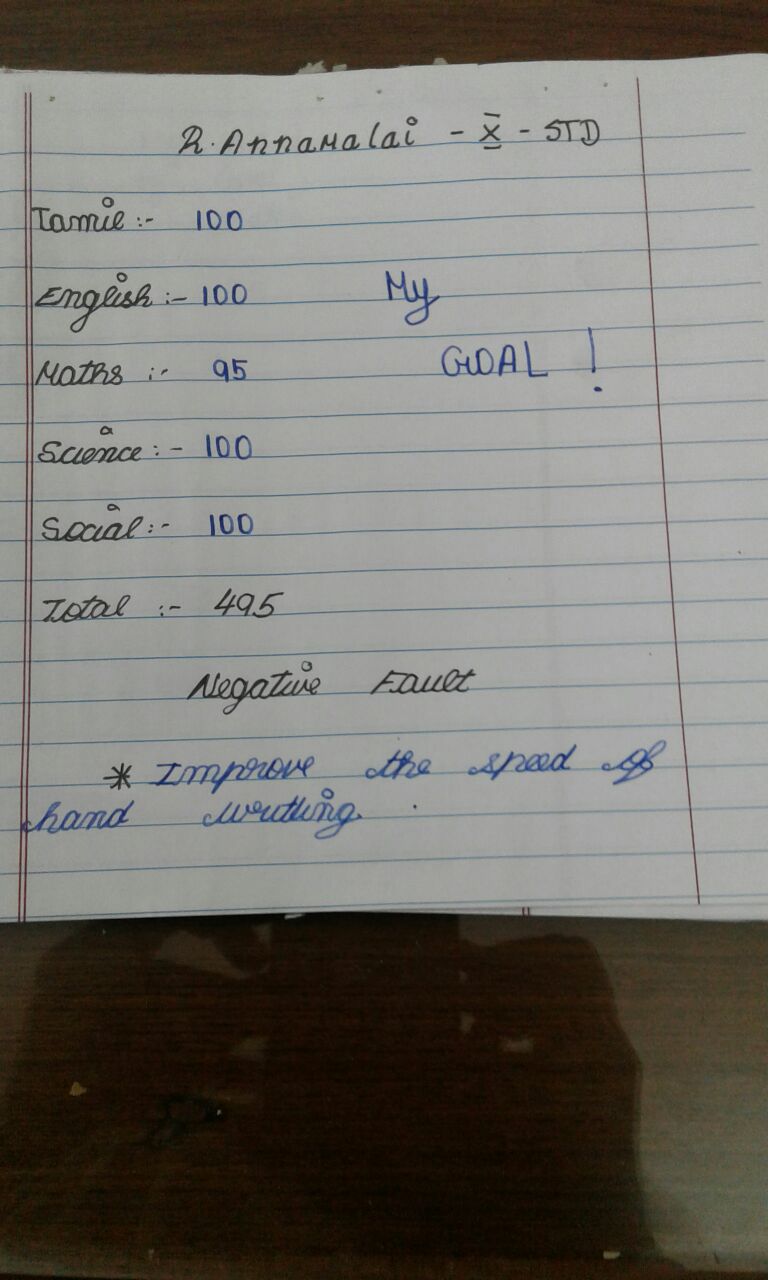 R. Annamalai - X - STD
Tamil :- 100
English :- 100 My
Maths :- 95 GOAL !
Science :- 100
Social :- 100
Total :- 495
Negative Fault
* Improve the speed of
hand writting.